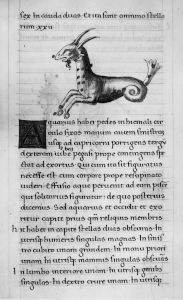 sex In cauda duas. Et ita sunt omnino stelle
rum xxii
Aquarius habet pedes in hiemali cir
culo fixos manum autem sinistram
usq; ad capricorni porrigens tergus
dextram iube pegasi prope contingens sp
tat ad exortus. Qui cum ita sit figuratus
necesse est eum corpore prope resupinato
videri. Effusio aque pervenit ad eum pisce
qui solitarius figuratur. de quo posterius
dicemus. Sed aquarius occidit et exo
ritur capite prius qm reliquis membris
habet in capite stellas duas obscuras. In
utrisq; humeris singulas magnas. In sinis
tro cubito unam grandem. In manu priori
unam. In utrisq; mammis singulas obscuras
In lumbo interiore unam. In utrisq; genibus
singulas. In dextro crure unam. In utrisq;